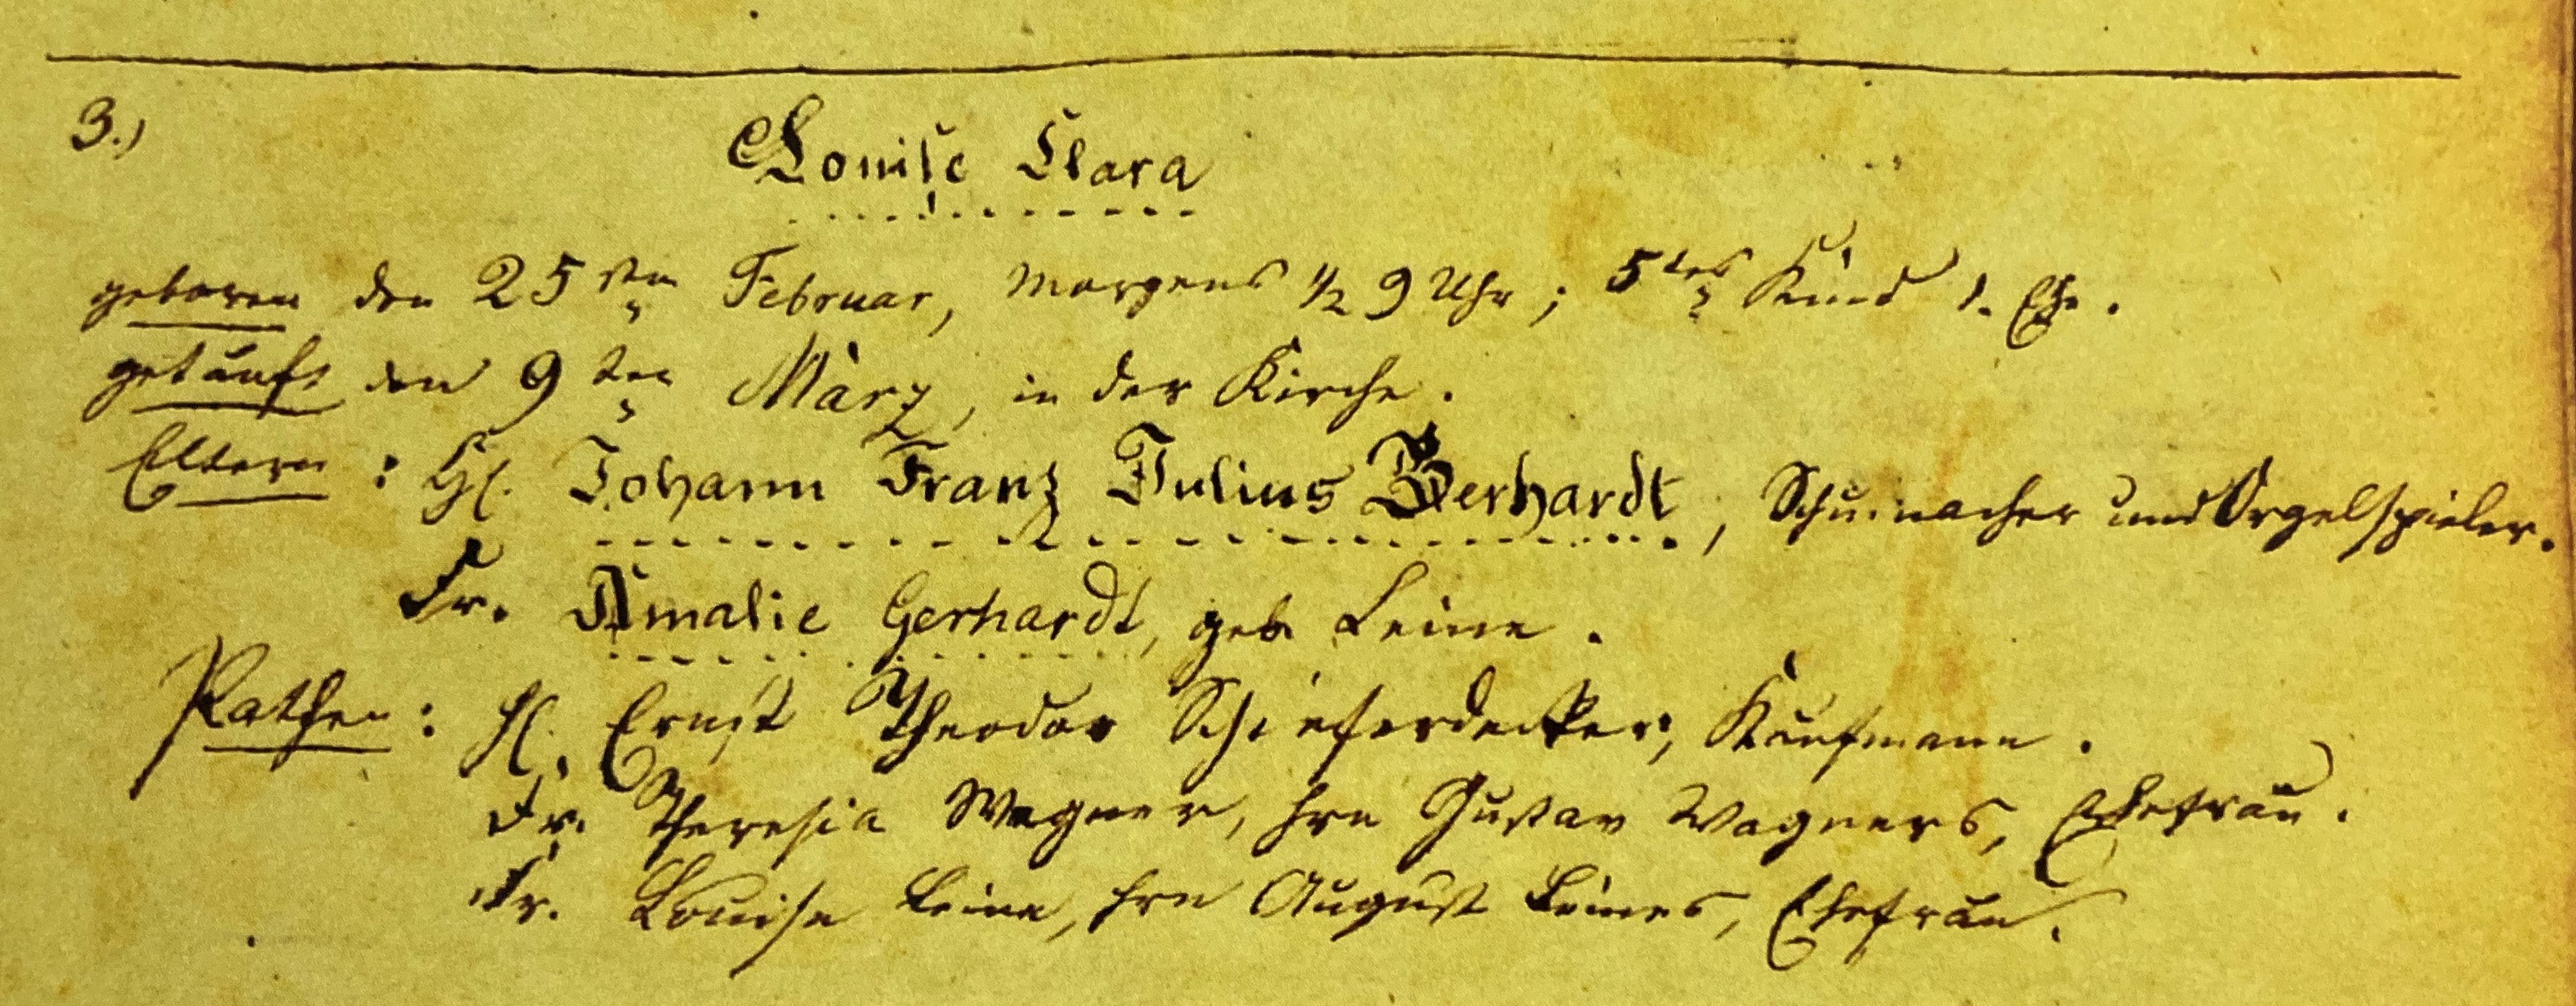 3.)
Louise Clara
geboren den 25sten Februar, Morgens ½ 9 Uhr; 5tes Kind 1. Ehe.
getauft den 9ten März, in der Kirche.
Eltern: H. Johann Franz Julius Gerhardt, Schumacher und Orgelspieler.
Fr. Amalie Gerhardt, geb. Leine.
Pathen: H. Ernst Theodor Schieferdecker, Kaufmann.
Fr. Theresia Wagner, Hrn Gustav Wagners, Ehefrau.
Fr. Louise Leine, Hrn August Leines, Ehefrau.